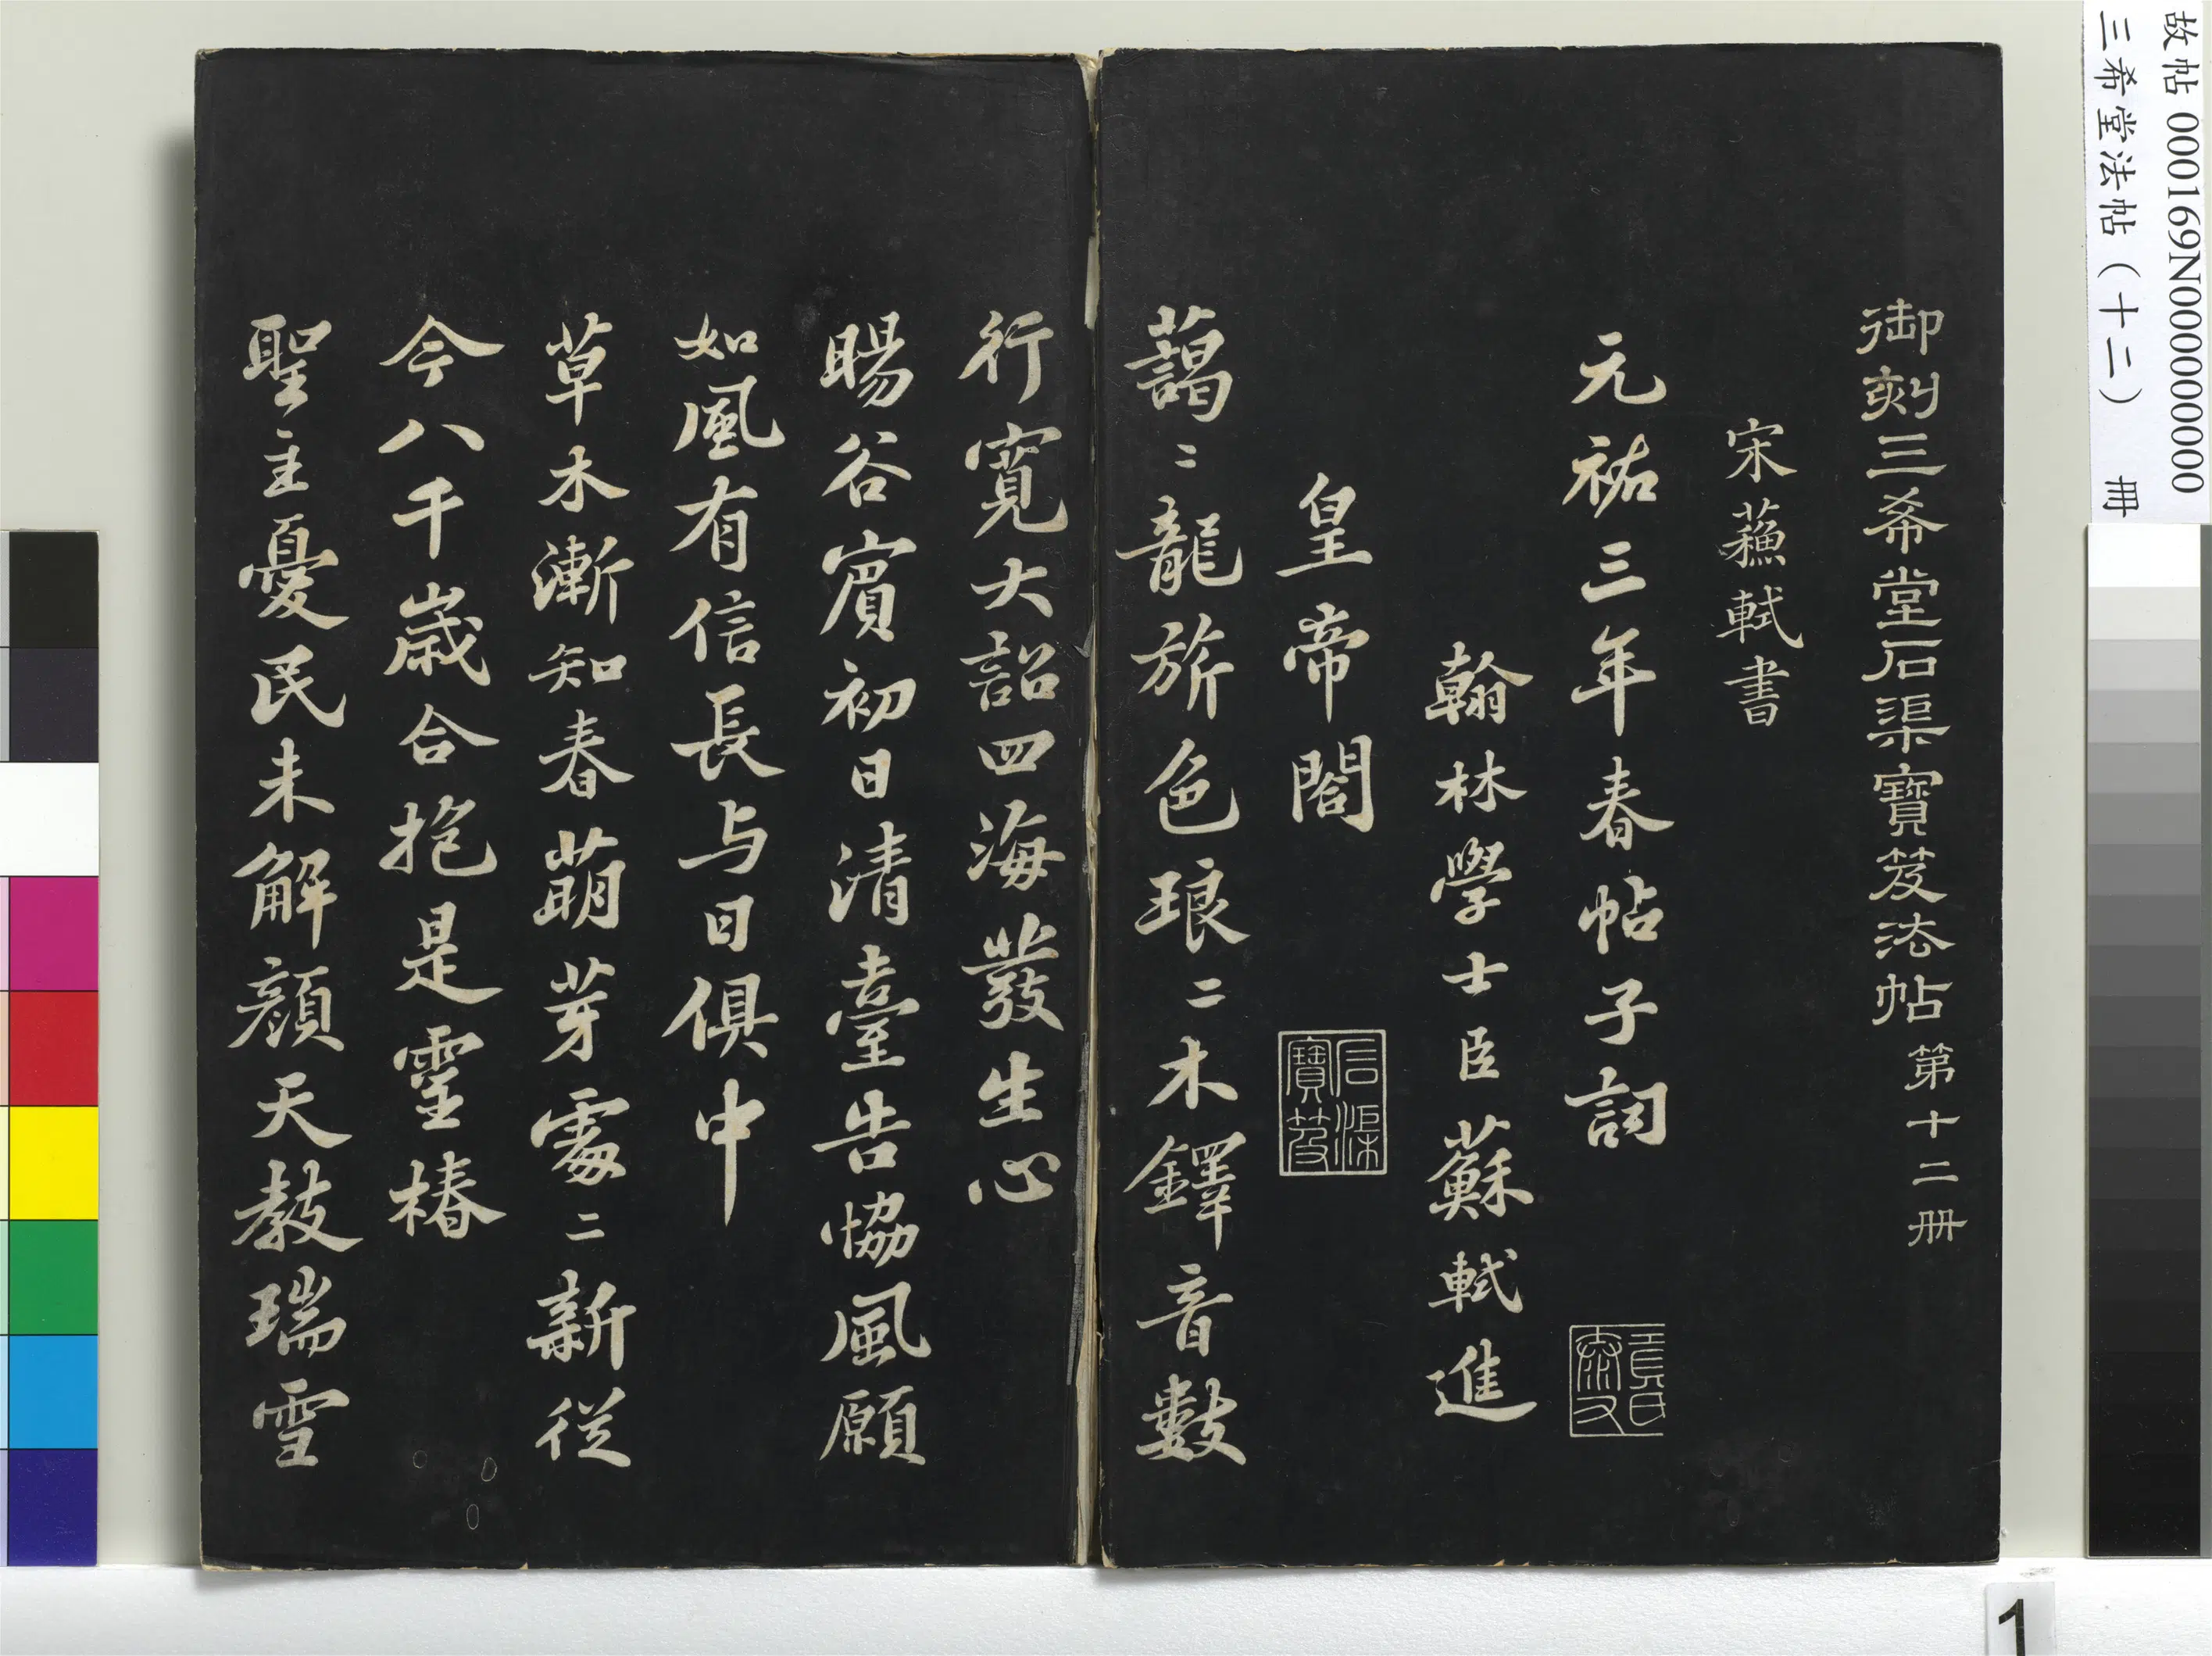 故帖 000169N000000000
三希堂法帖（十二） 冊
御刻三希堂石渠寶笈法帖 第十二册
宋蘓軾書
元祐三年春帖子詞
翰林學士臣蘇軾進
皇帝閤
石渠寶笈
藹〻龍旂色琅〻木鐸音數
行寬大詔四海發生心
暘谷賓初日清臺告協風願
如風有信長与日俱中
草木漸知春萌芽處〻新從
今八千歲合抱是靈椿
聖主憂民未解顏天教瑞雪
1